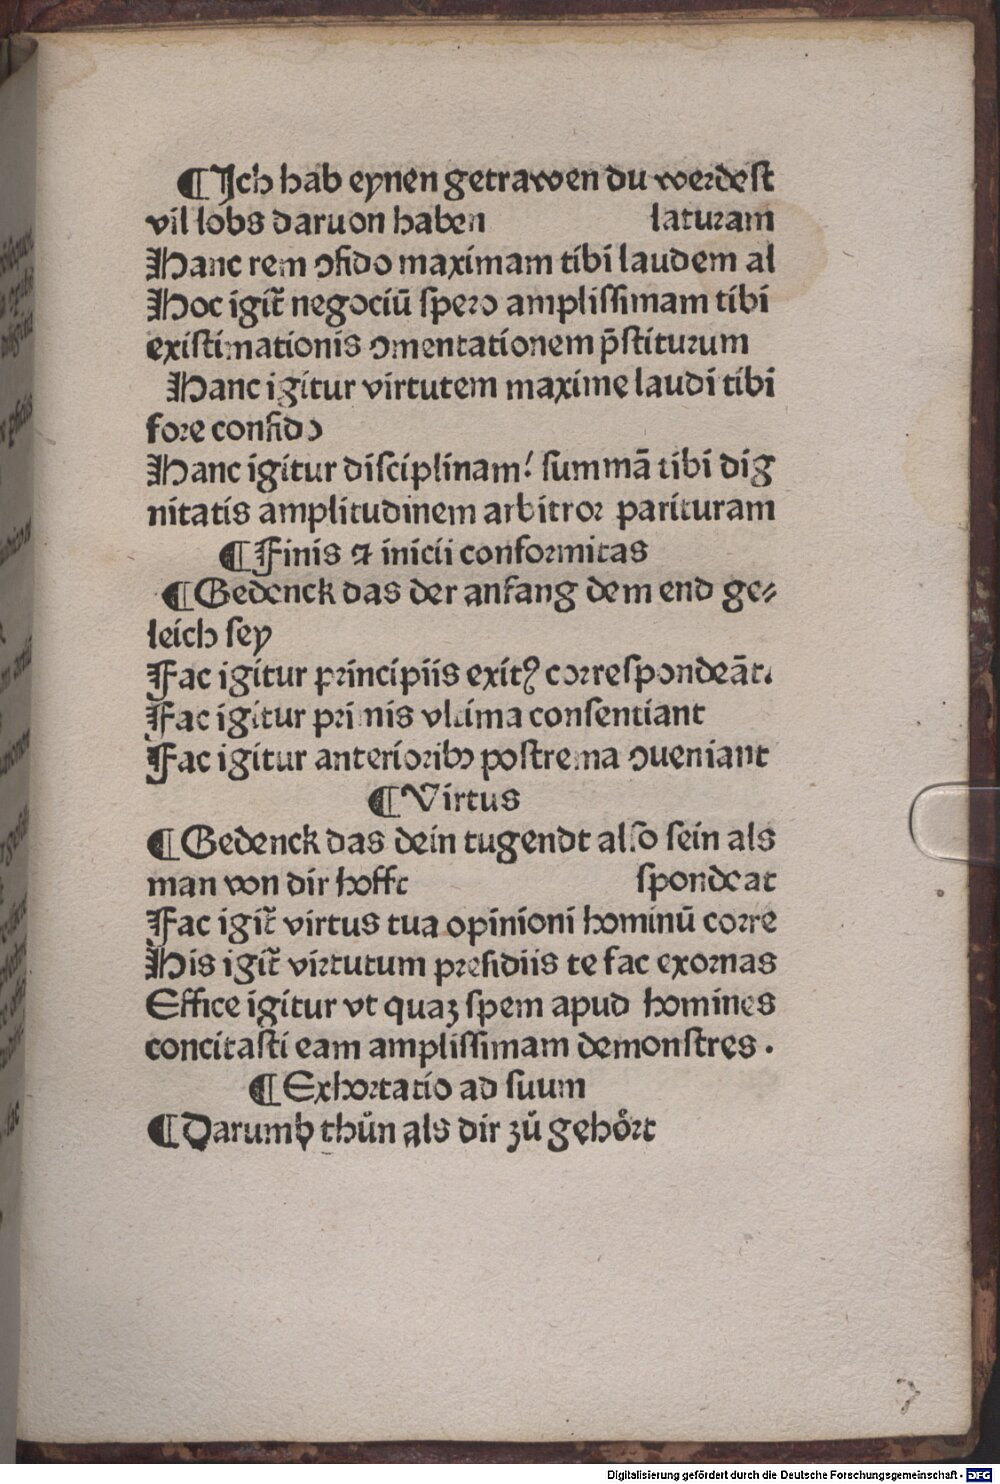 ¶Ich hab eynen getrawen du werdest
vil lobs daruon haben laturam
Hanc rem ↄfido maximam tibi laudem al
Hoc igit̃ negociū spero amplissimam tibi
existimationis ↄmentationem p̄stiturum
Hanc igitur virtutem maxime laudi tibi
fore confido
Hanc igitur disciplinam/ summā tibi dig
nitatis amplitudinem arbitror parituram
¶Finis ⁊ inicii conformitas
¶Gedenck das der anfang dem end ge⸗
leich sey
Fac igitur principiis exitꝰ correspondeāt.
Fac igitur primis vltima consentiant
Fac igitur anterioribꝰ postrema ↄueniant
¶Virtus
¶Gedenck das dein tugendt also sein als
man von dir hofft spondeat
Fac igit̃ virtus tua opinioni hominū corre
His igit̃ virtutum presidiis te fac exornas
Effice igitur vt quaꝫ spem apud homines
concitasti eam amplissimam demonstres .
¶Exhortatio ad suum
¶Darumb thuͦn als dir zuͦ gehoͤrt
7
Digitalisierung gefördert durch die Deutsche Forschungsgemeinschaft - DFG